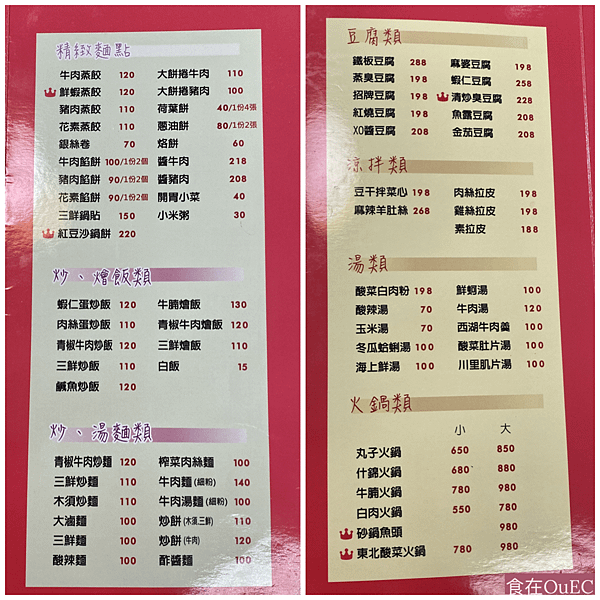 精緻麵點
牛肉蒸餃 120
鮮蝦蒸餃 120
豬肉蒸餃 110
花素蒸餃 110
銀絲卷 70
牛肉餡餅 100/1份2個
豬肉餡餅 90/1份2個
花素餡餅 90/1份2個
三鮮鍋貼 150
紅豆沙鍋餅 220
大餅捲牛肉 110
大餅捲豬肉 100
荷葉餅 40/1份4張
蔥油餅 80/1份2張
烙餅 60
醬牛肉 218
醬豬肉 208
開胃小菜 40
小米粥 30
炒、燴飯類
蝦仁蛋炒飯 120
肉絲蛋炒飯 110
青椒牛肉炒飯 120
三鮮炒飯 110
鹹魚炒飯 120
牛腩燴飯 130
青椒牛肉燴飯 120
三鮮燴飯 110
白飯 15
炒、湯麵類
青椒牛肉炒麵 120
三鮮炒麵 110
木須炒麵 110
大滷麵 100
三鮮麵 100
酸辣麵 100
榨菜肉絲麵 100
牛肉麵(細粉) 140
牛肉湯麵(細粉) 100
炒餅(木須,三鮮) 110
炒餅(牛肉) 120
酢醬麵 100
豆腐類
鐵板豆腐 288
蒸臭豆腐 198
招牌豆腐 198
紅燒豆腐 198
XO醬豆腐 208
麻婆豆腐 198
蝦仁豆腐 258
清炒臭豆腐 228
魚露豆腐 208
金茄豆腐 208
涼拌類
豆干拌菜心 198
麻辣羊肚絲 268
肉絲拉皮 198
雞絲拉皮 198
素拉皮 188
湯類
酸菜白肉粉 198
酸辣湯 70
玉米湯 70
冬瓜蛤蜊湯 100
海上鮮湯 100
鮮蚵湯 100
牛肉湯 120
西湖牛肉羹 100
酸菜肚片湯 100
川里肌片湯 100
火鍋類
小 大
丸子火鍋 650 850
什錦火鍋 680 880
牛腩火鍋 780 980
白肉火鍋 550 780
砂鍋魚頭 980
東北酸菜火鍋 780 980
食在OuEC